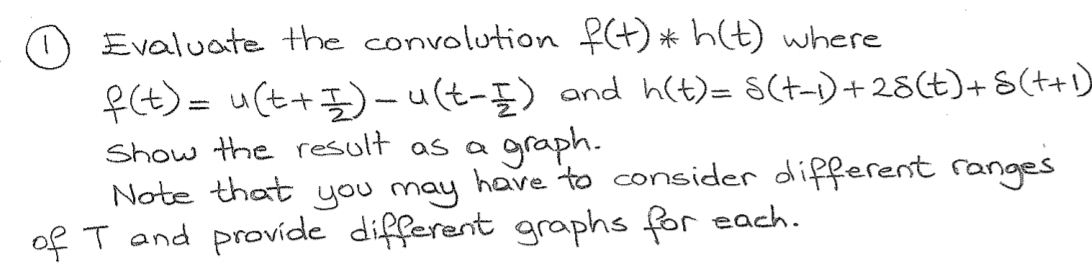 ① Evaluate the convolution f(t) * h(t) where
f(t) = u(t+T/2) - u(t-T/2) and h(t) = δ(t-1) + 2δ(t) + δ(t+1)
Show the result as a graph.
Note that you may have to consider different ranges
of T and provide different graphs for each.